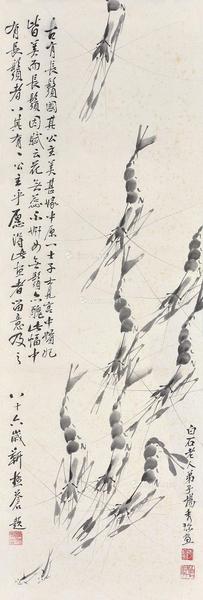 古有長鬚國其公主美甚嫁中原一士子士見宮中嬪妃
皆美而長鬚因賦云花無蕊不妍女無鬚亦醜此幅中
有長鬚者八其有一公主乎願得此畫者留意及之
八十六歲新
蒼題
白石老人弟子楊秀珍畫